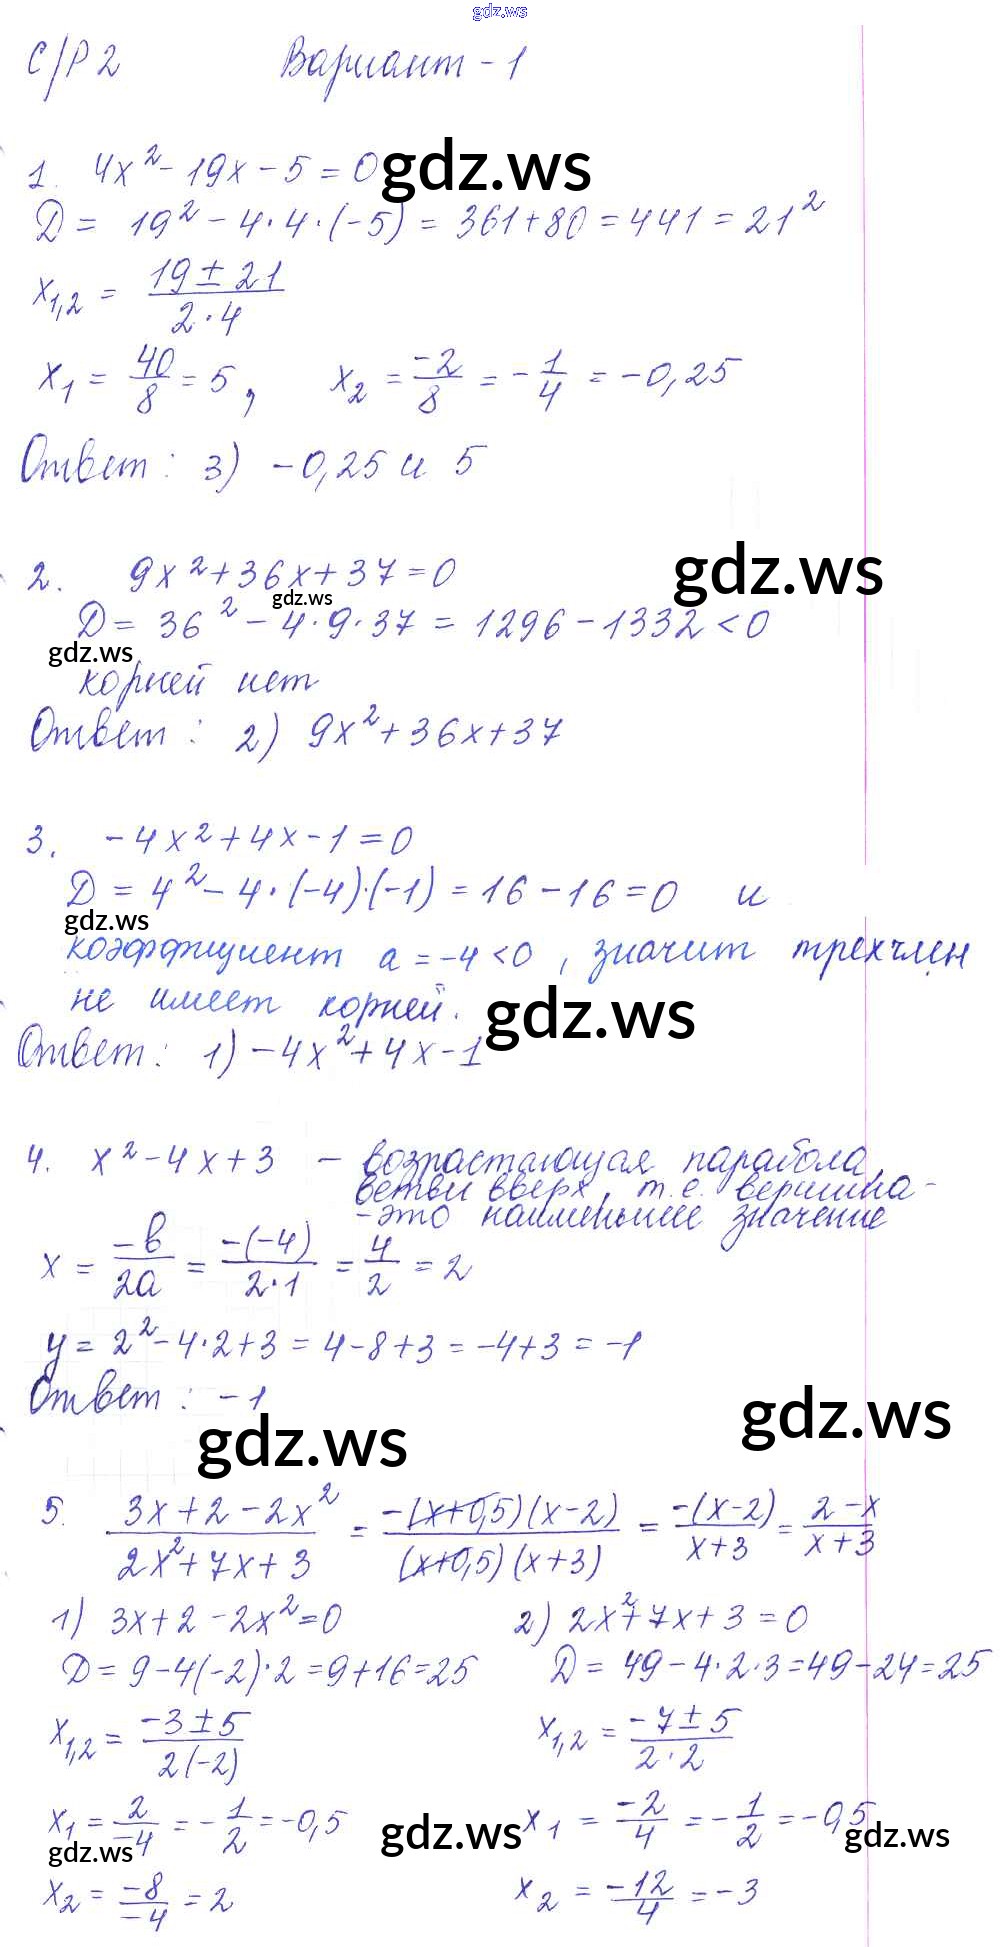 gdz.ws
С/Р 2 Вариант - 1
1. 4x² - 19x - 5 = 0 gdz.ws
D = 19² - 4·4·(-5) = 361 + 80 = 441 = 21²
x₁,₂ = (19 ± 21)/(2·4)
x₁ = 40/8 = 5, x₂ = -2/8 = -1/4 = -0,25
Ответ: 3) -0,25 и 5
2. 9x² + 36x + 37 = 0 gdz.ws
gdz.ws
D = 36² - 4·9·37 = 1296 - 1332 < 0
gdz.ws
корней нет
Ответ: 2) 9x² + 36x + 37
3. -4x² + 4x - 1 = 0
D = 4² - 4·(-4)·(-1) = 16 - 16 = 0 и
gdz.ws
коэффициент a = -4 < 0, значит трехчлен
не имеет корней. gdz.ws
Ответ: 1) -4x² + 4x - 1
4. x² - 4x + 3 - возрастающая парабола,
ветви вверх, т.е. вершина -
- это наименьшее значение
x = -b/2a = -(-4)/(2·1) = 4/2 = 2
y = 2² - 4·2 + 3 = 4 - 8 + 3 = -4 + 3 = -1
Ответ: -1
gdz.ws gdz.ws
5. (3x + 2 - 2x²)/(2x² + 7x + 3) = -(x+0,5)(x-2)/((x+0,5)(x+3)) = -(x-2)/(x+3) = (2-x)/(x+3)
1) 3x + 2 - 2x² = 0 2) 2x² + 7x + 3 = 0
D = 9 - 4(-2)·2 = 9 + 16 = 25 D = 49 - 4·2·3 = 49 - 24 = 25
x₁,₂ = (-3 ± 5)/(2(-2)) x₁,₂ = (-7 ± 5)/(2·2)
x₁ = 2/-4 = -1/2 = -0,5 gdz.ws x₁ = -2/4 = -1/2 = -0,5 gdz.ws
gdz.ws
x₂ = -8/-4 = 2 x₂ = -12/4 = -3